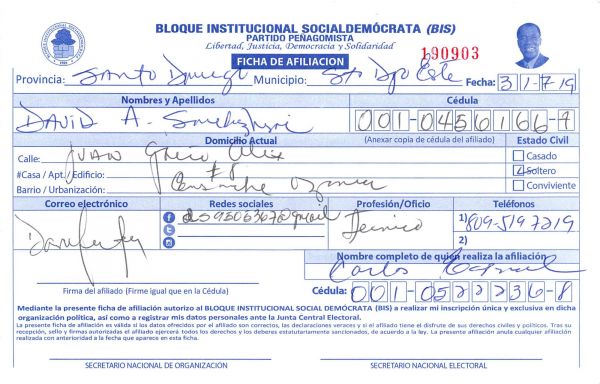 BLOQUE INSTITUCIONAL SOCIALDEMÓCRATA (BIS)
PARTIDO PEÑAGOMISTA
Libertad, Justicia, Democracia y Solidaridad
190903
FICHA DE AFILIACION
Provincia: Santo Doming Municipio: Sto Dgo Este Fecha: 31-7-19
Nombres y Apellidos Cédula
DAVID A. 001-0456166-7
Domicilio Actual (Anexar copia de cédula del afiliado) Estado Civil
Calle: JUAN Casado
#Casa / Apt. / Edificio: #8 Soltero
Barrio / Urbanización: Ensanche Ozama Conviviente
Correo electrónico Redes sociales Profesión/Oficio Teléfonos
Tecnico 1) 809-519 7219
2)
Nombre completo de quién realiza la afiliación
Carlos
Firma del afiliado (Firme igual que en la Cédula) Cédula: 001-0522236-8
Mediante la presente ficha de afiliación autorizo al BLOQUE INSTITUCIONAL SOCIAL DEMÓCRATA (BIS) a realizar mi inscripción única y exclusiva en dicha
organización política, así como a registrar mis datos personales ante la Junta Central Electoral.
La presente ficha de afiliación es válida si los datos ofrecidos por el afiliado son correctos, las declaraciones veraces y si el afiliado tiene el disfrute de sus derechos civiles y políticos. Tras su
recepción, sello y firmas autorizadas el afiliado ejercerá todos los derechos y los deberes estatutariamente sancionados, de acuerdo a la ley. La presente afiliación anule cualquier afiliación
realizada con anterioridad a la fecha que aparece en esta ficha.
SECRETARIO NACIONAL DE ORGANIZACIÓN SECRETARIO NACIONAL ELECTORAL